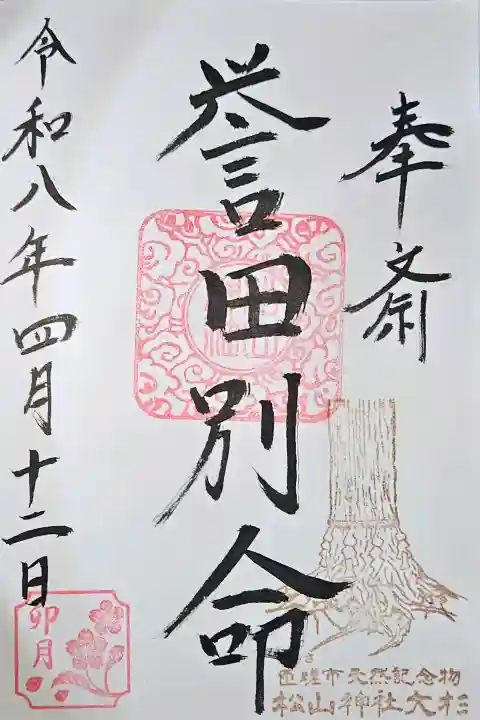 奉斎
誉田別命
令和八年四月十二日
卯月
匝瑳市天然記念物
さ
松山神社大杉